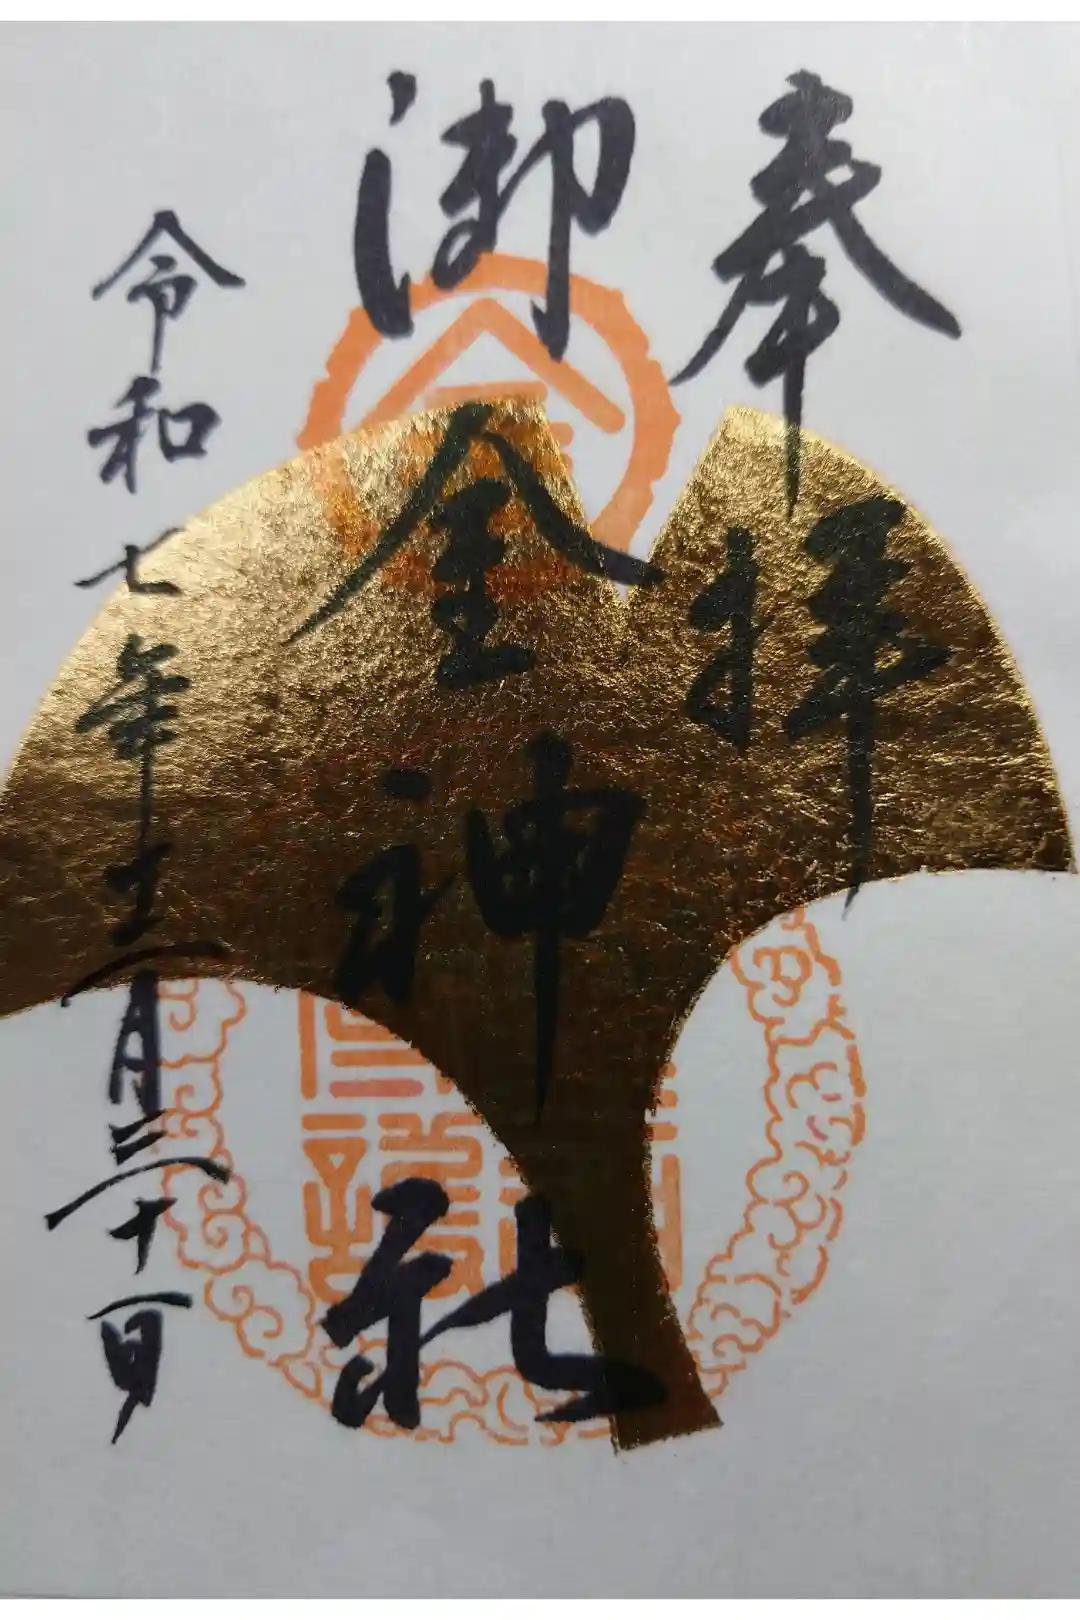 奉拝
御金神社
令和七年十二月三十一日